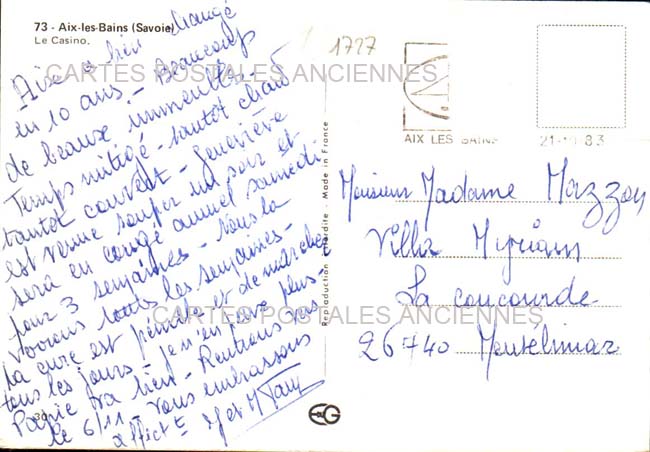 73 - Aix-les-Bains (Savoie)
Le Casino.
Aix a bien changé
en 10 ans. - Beaucoup
de beaux immeubles.
Temps mitigé - tantôt chaud
tantôt couvert - Geneviève
est venue souper un soir et
sera en congé annuel samedi
pour 3 semaines - Nous la
voyons toutes les semaines -
La cure est pénible et de marcher
tous les jours - je n'en peux plus -
va bien - Rentrons vers
le 6/11 - vous embrassons
affect t
30
CARTES POSTALES ANCIENNES
CARTES POSTALES ANCIENNES
Reproduction interdite - Made in France
1727
AIX LES BAINS
83
Monsieur Madame Mazzon
Villa Myriam
La concourde
26740 Montélimar